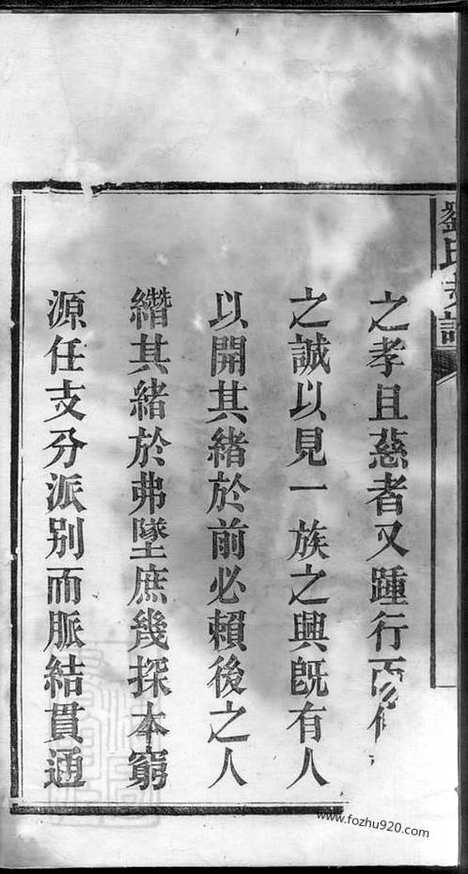 劉氏支譜
之孝且慈者又踵行而
之誠以見一族之興旣有人
以開其緒於前必賴後之人
纘其緒於弗墜庶幾探本窮
源任支分派别而脈結貫通
www.fozhu920.com